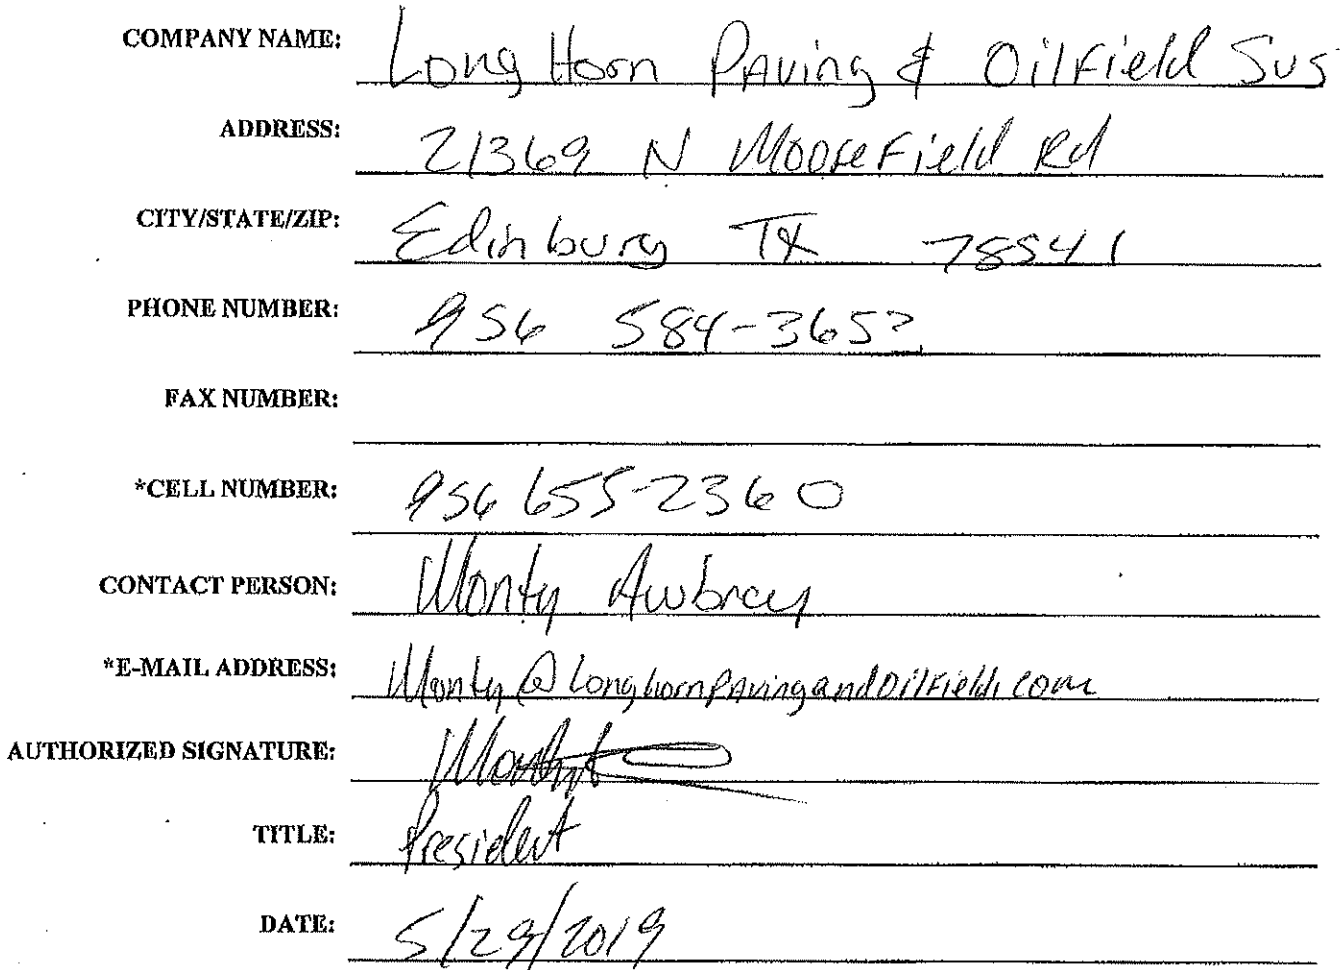 COMPANY NAME: Long Horn Paving & Oilfield Svs
ADDRESS: 21369 N Moorefield Rd
CITY/STATE/ZIP: Edinburg TX 78541
PHONE NUMBER: 956 584-3653
FAX NUMBER:
*CELL NUMBER: 956 655-2360
CONTACT PERSON: Monty Awbrey
*E-MAIL ADDRESS: Monty@longhornpavingandoilfield.com
AUTHORIZED SIGNATURE:
TITLE: President
DATE: 5/29/2019